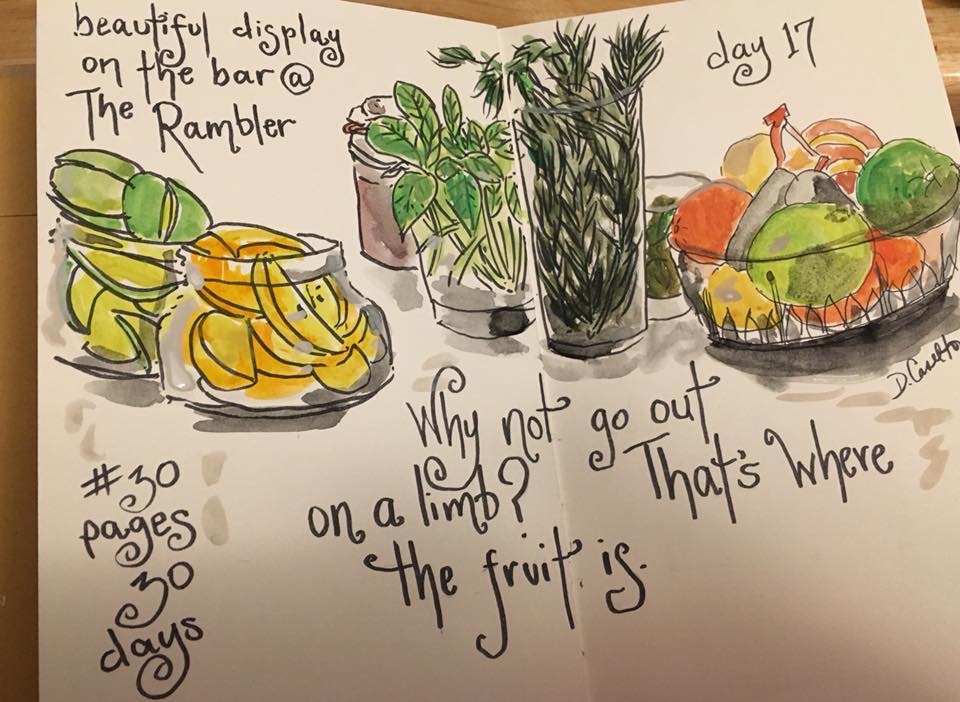 beautiful display
on the bar @
The Rambler
day 17
#30
pages
30
days
Why not go out
on a limb? That's Where
the fruit is.